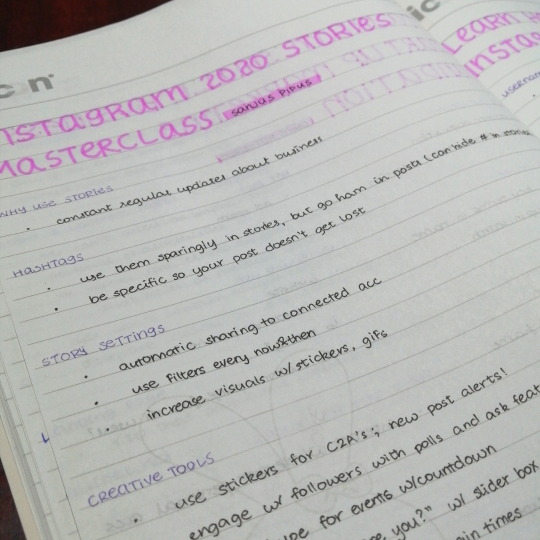 con
INSTAGRAM 2020 STORIES
MASTERCLASS
WHY USE STORIES
• constant regular updates about business
HASHTAGS
• use them sparingly in stories, but go ham in posts (can hide # in stories
• be specific so your post doesn't get lost
STORY SETTINGS
• automatic sharing to connected acc
• use filters every now&then
• increase visuals w/ stickers, gifs
CREATIVE TOOLS
• use stickers for C2A's; new post alerts!
engage w/ followers with polls and ask
for events w/countdown
you?" w/ slider box
times
ic
LEARN
INSTAG
USERNAM